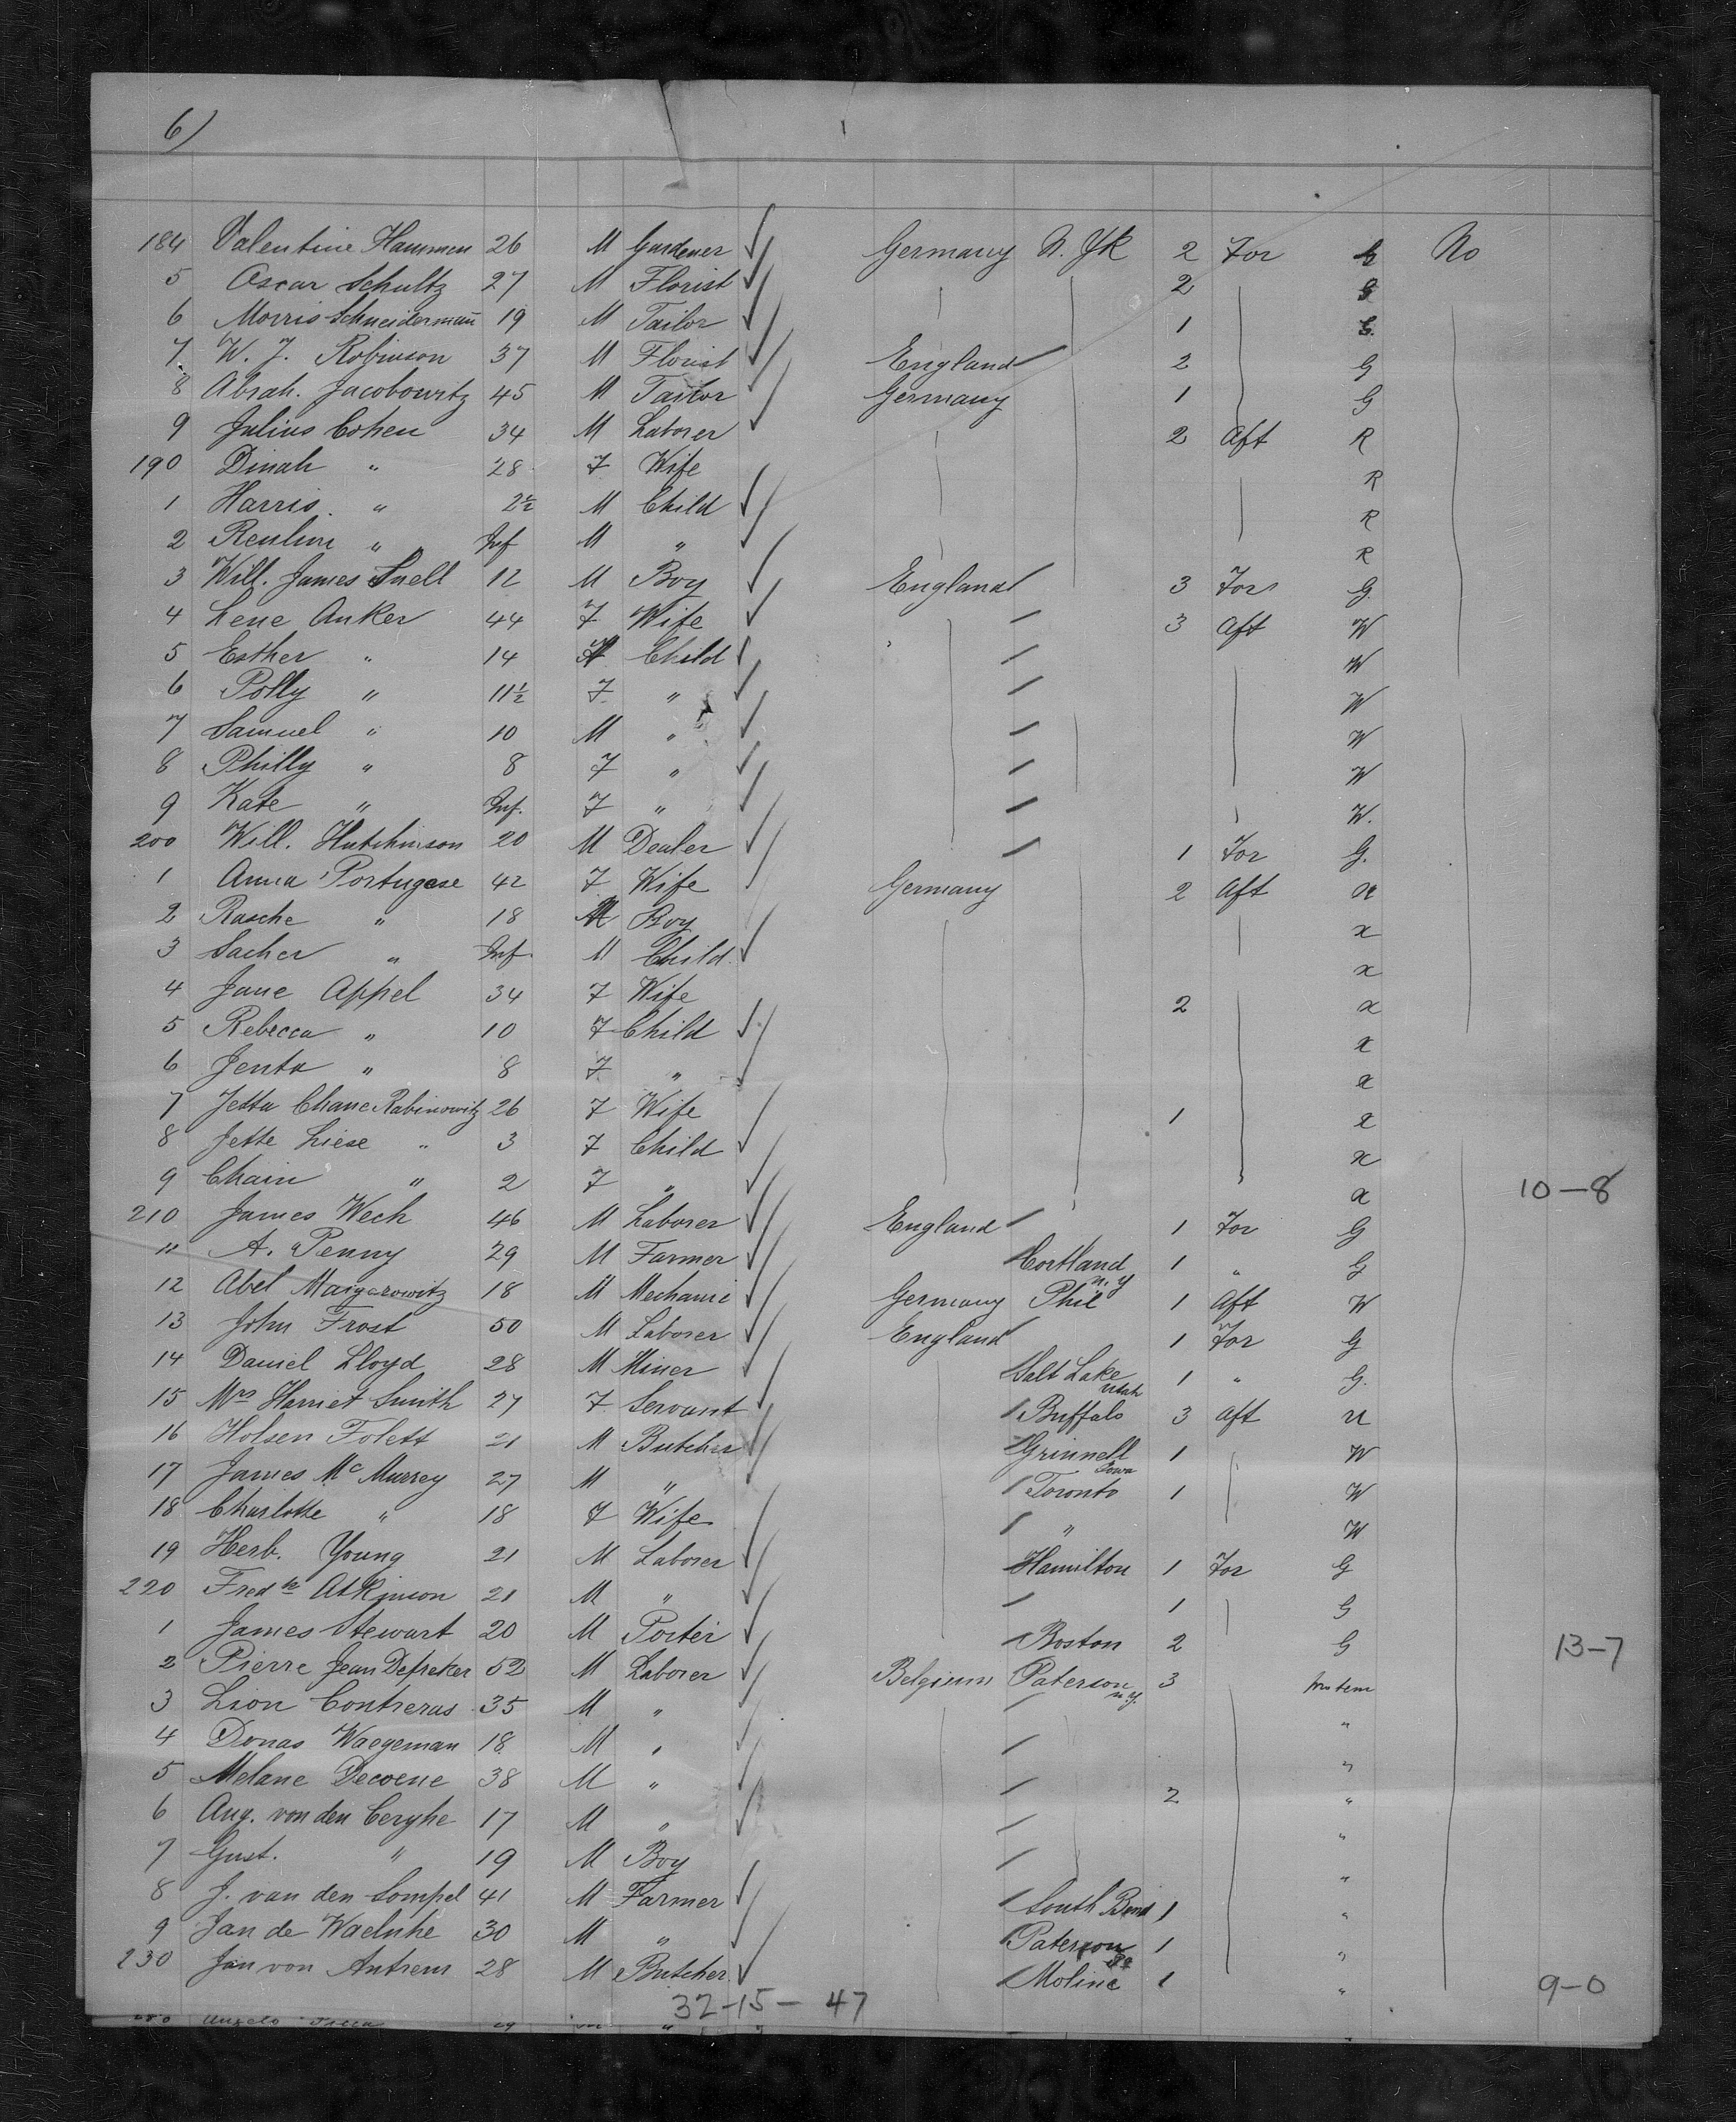 6)
184 Valentine Hammen 26 M Gardener Germany N. Yk 2 For G No
5 Oscar Schultz 27 M Florist 2 G
6 Morris Schneidermann 19 M Tailor 1 G.
7. W. J. Robinson 37 M Florist England 2 G
8 Abrah. Jacobowitz 45 M Tailor Germany 1 G
9 Julius Cohen 34 M Laborer 2 Aft R
190 Dinah " 28 F Wife R
1 Harris. " 2½ M Child R
2 " Inf M " R
3 Will. James Snell 12 M Boy England 3 For G.
4 Lene Anker 44 F Wife 3 Aft W
5 Esther " 14 Child W
6 Polly " 11½ F " W
7 Samuel " 10 M " W
8 Philly " 8 F " W
9 Kate " Inf. F " W.
200 Will. Hutchinson 20 M Dealer 1 For G.
1 Anna Portugese 42 F Wife Germany 2 Aft x
2 Rasche " 18 M Boy x
3 Sacher " Inf. M Child. x
4 Jane Appel 34 F Wife 2 x
5 Rebecca " 10 F Child x
6 Jenta " 8 F " x
7 Jetta Chane Rabinowitz 26 F Wife 1 x
8 Jette Liese " 3 F Child x
9 Chain " 2 F " x 10-8
210 James Wech 46 M Laborer England 1 For G
11 A. Penny 29 M Farmer Cortland N. Y 1 " G
12 Abel Maigarowitz 18 M Mechanic Germany Phil 1 Aft W
13 John Frost 50 M Laborer England 1 For G
14 Daniel Lloyd 28 M Miner Salt Lake Utah 1 " G.
15 Mrs Harriet Smith 27 F Servant Buffalo 3 Aft
16 Holsen Folett 21 M Butcher Grinnell Iowa 1 W
17 James Mc Murrey 27 M " Toronto 1 W
18 Charlotte " 18 F Wife " W
19 Herb. Young 21 M Laborer Hamilton 1 For G
220 Fredk Atkinson 21 M " 1 G
1 James Stewart 20 M Porter Boston 2 G 13-7
2 Pierre Jean Defreker 52 M Laborer Belgium Paterson N.Y. 3
3 Lion Contreras 35 M " "
4 Donas Waegeman 18 M " "
5 Melane Decoene 38 M " 2 "
6 Aug. von den Cerghe 17 M " "
7 Gust. " 19 M Boy "
8 J. van den Sompel 41 M Farmer South Bend 1 "
9 Jan de Waeluhe 30 M " Paterson 1 "
230 Jan von Antrens 28 M Butcher Moline 1 " 9-0
32-15- 47
280 Angelo